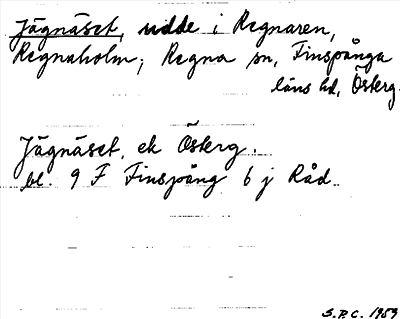 Jägnäset, udde i Regnaren,
Regnaholm; Regna sn, Finspånga
läns hd, Österg.
Jägnäset, ek Österg.
bl. 9 F Finspång 6 j Råd.
S.P.C. 1959